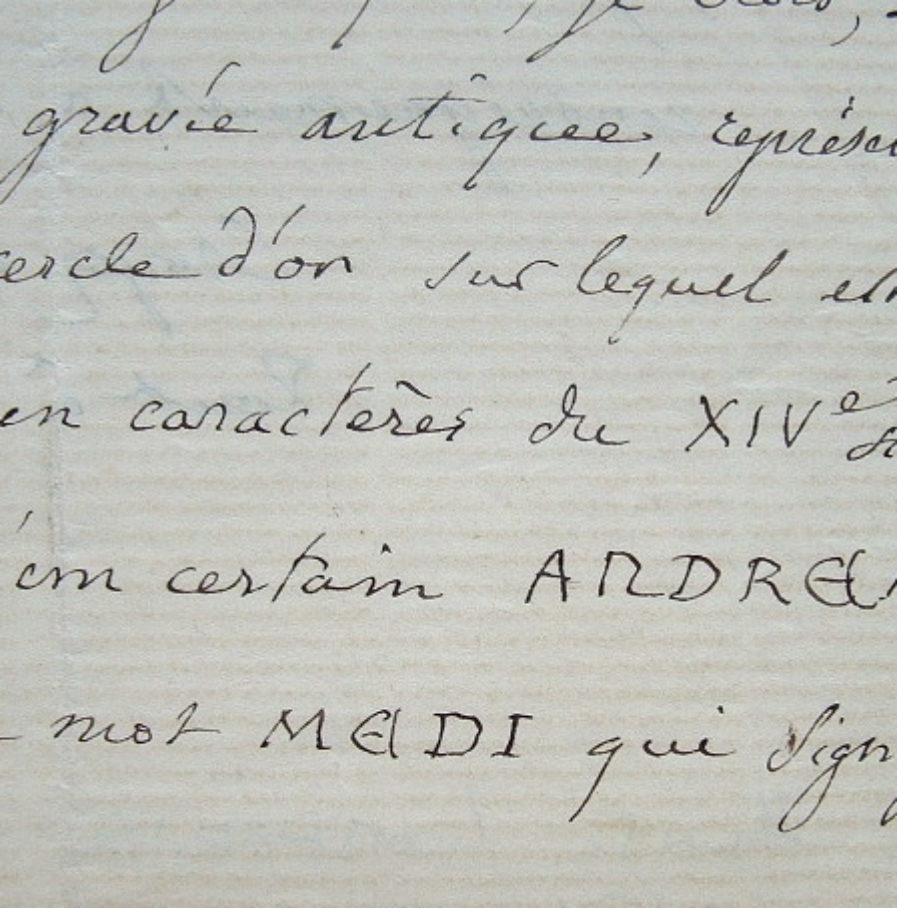 , je crois,
gravée antique, représen
cercle d'or sur lequel en
en caractères du XIVe
d'un certain ANDREA
mot MEDI qui sign